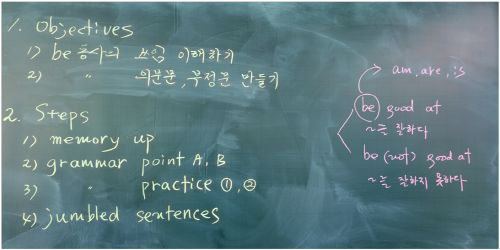 1. Objectives
1) be동사의 쓰임 이해하기
2) " 의문문, 부정문 만들기
2. Steps
1) memory up
2) grammar point A, B
3) " practice ①, ②
4) jumbled sentences
am, are, is
be good at
~를 잘하다
be (not) good at
~를 잘하지 못하다